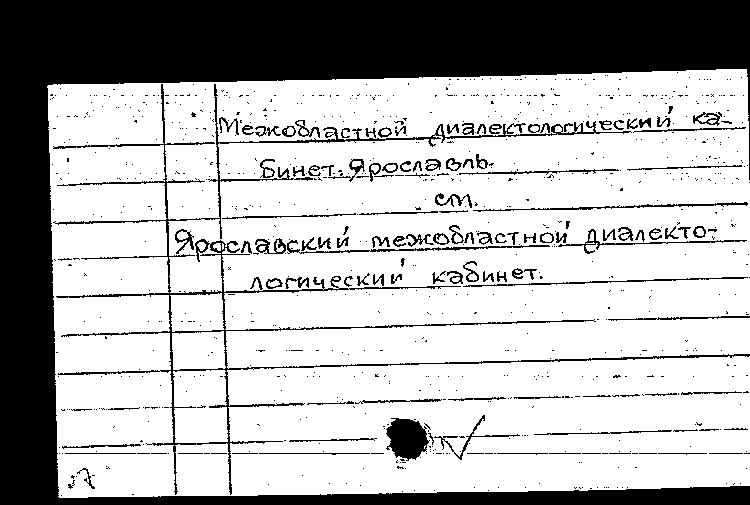 Межобластной диалектологический ка-
бинет. Ярославль.
см.
Ярославский межобластной диалекто-
логический кабинет.